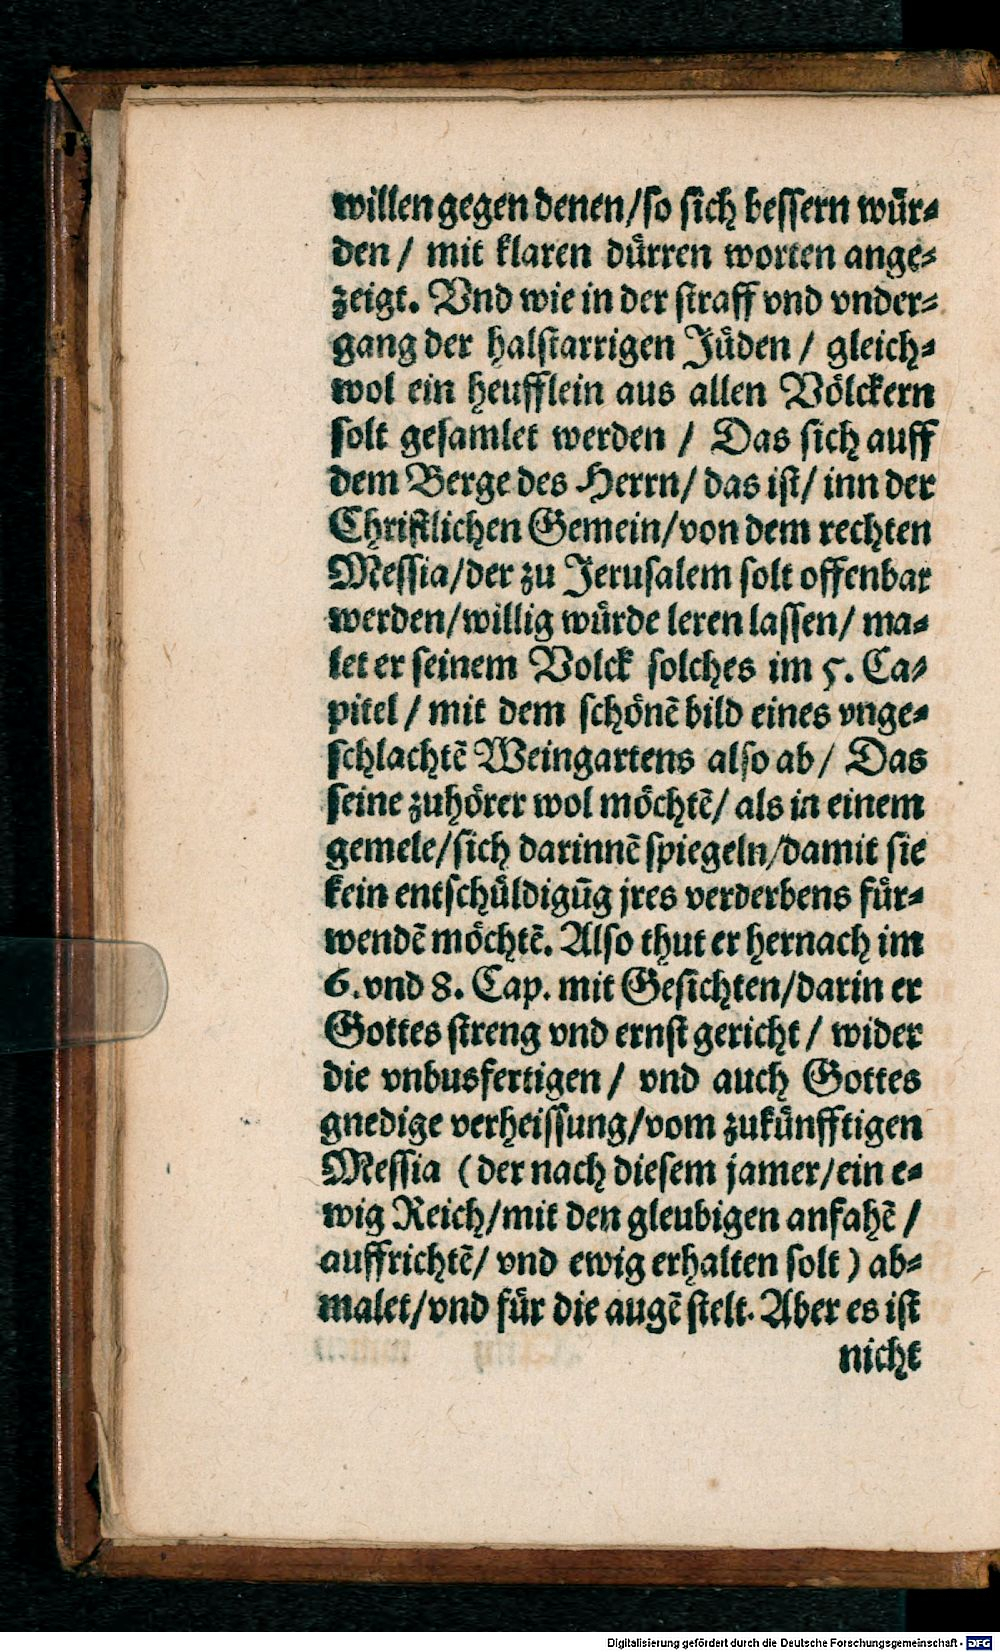 willen gegen denen/so sich bessern wuͤr⸗
den / mit klaren duͤrren worten ange⸗
zeigt. Vnd wie in der straff vnd vnder⸗
gang der halstarrigen Juͤden / gleich⸗
wol ein heufflein aus allen Voͤlckern
solt gesamlet werden / Das sich auff
dem Berge des Herrn/ das ist/ inn der
Christlichen Gemein/von dem rechten
Messia/der zu Jerusalem solt offenbar
werden/willig wuͤrde leren lassen/ ma⸗
let er seinem Volck solches im 5. Ca⸗
pitel / mit dem schoͤnē bild eines vnge⸗
schlachtē Weingartens also ab/ Das
seine zuhoͤrer wol moͤchtē/ als in einem
gemele/sich darinnē spiegeln/damit sie
kein entschuͤldigūg jres verderbens fuͤr⸗
wendē moͤchtē. Also thut er hernach im
6. vnd 8. Cap. mit Gesichten/darin er
Gottes streng vnd ernst gericht / wider
die vnbusfertigen / vnd auch Gottes
gnedige verheissung/vom zukuͤnfftigen
Messia (der nach diesem jamer/ein e⸗
wig Reich/mit den gleubigen anfahē /
auffrichtē/ vnd ewig erhalten solt) ab⸗
malet/vnd fuͤr die augē stelt. Aber es ist
nicht
Digitalisierung gefördert durch die Deutsche Forschungsgemeinschaft - DFG